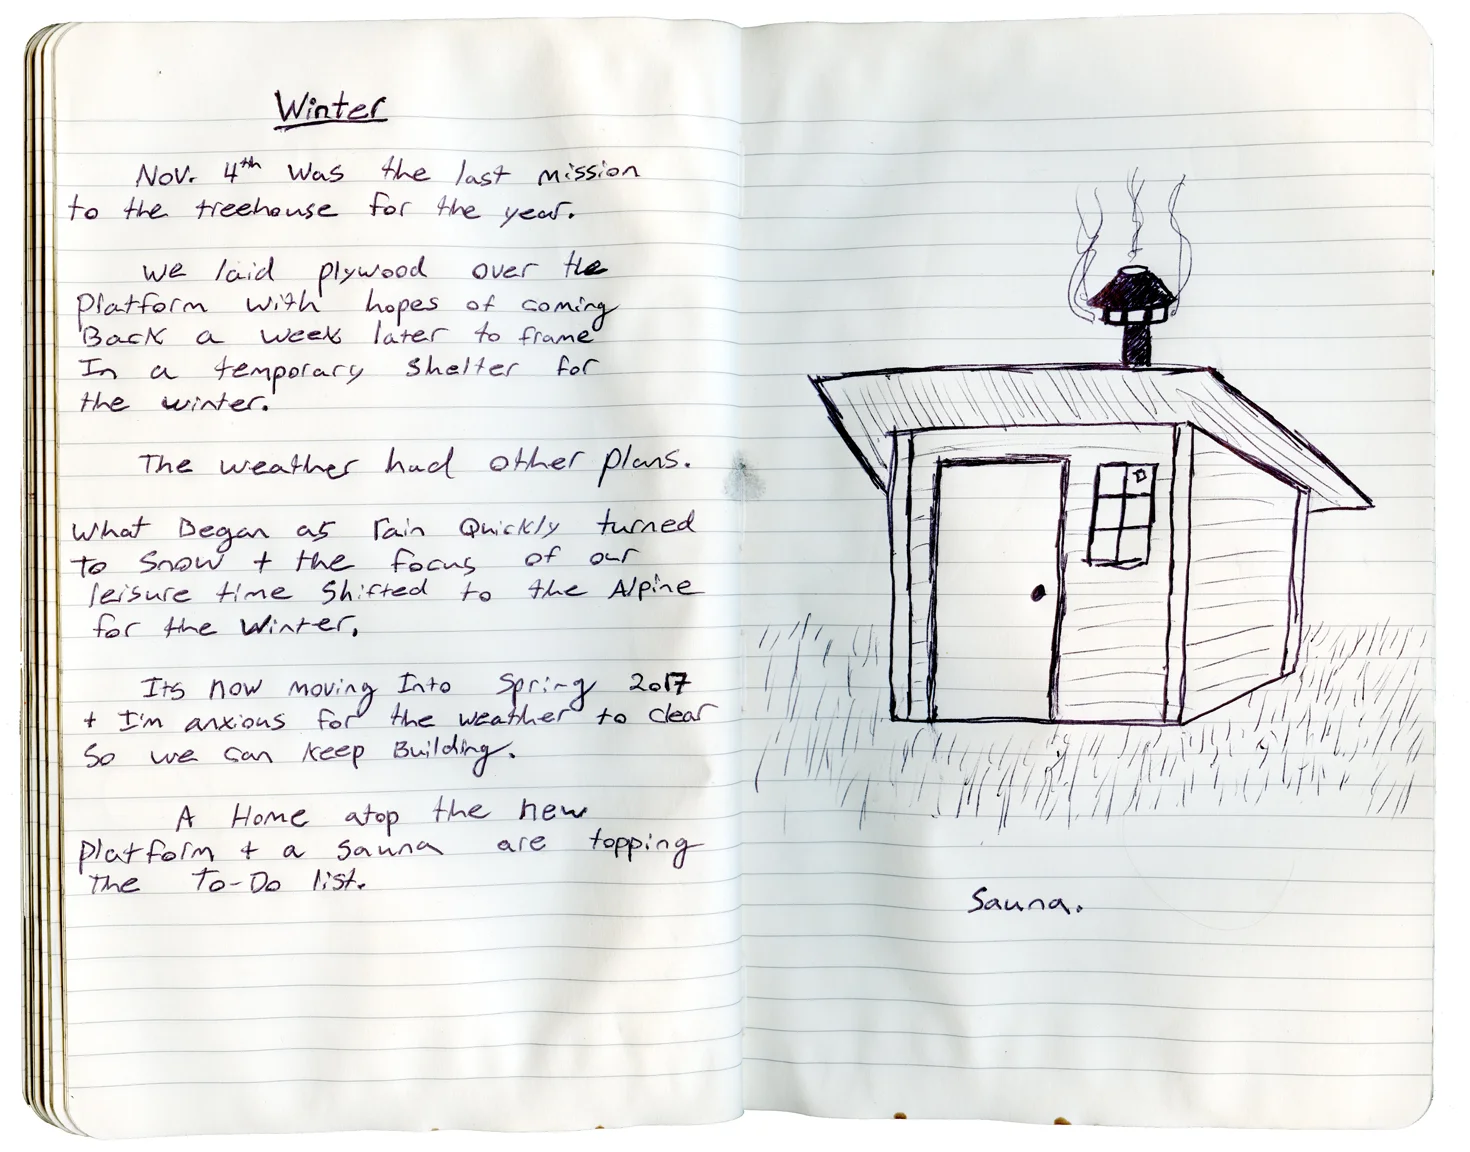 Winter
Nov. 4th was the last mission
to the treehouse for the year.
We laid plywood over the
platform with hopes of coming
Back a week later to frame
In a temporary shelter for
the winter.
The weather had other plans.
What Began as rain Quickly turned
to snow + the focus of our
leisure time shifted to the Alpine
for the Winter.
Its now moving Into Spring 2017
+ I'm anxious for the weather to clear
So we can keep Building.
A Home atop the new
platform + a sauna are topping
the To-Do list.
Sauna.